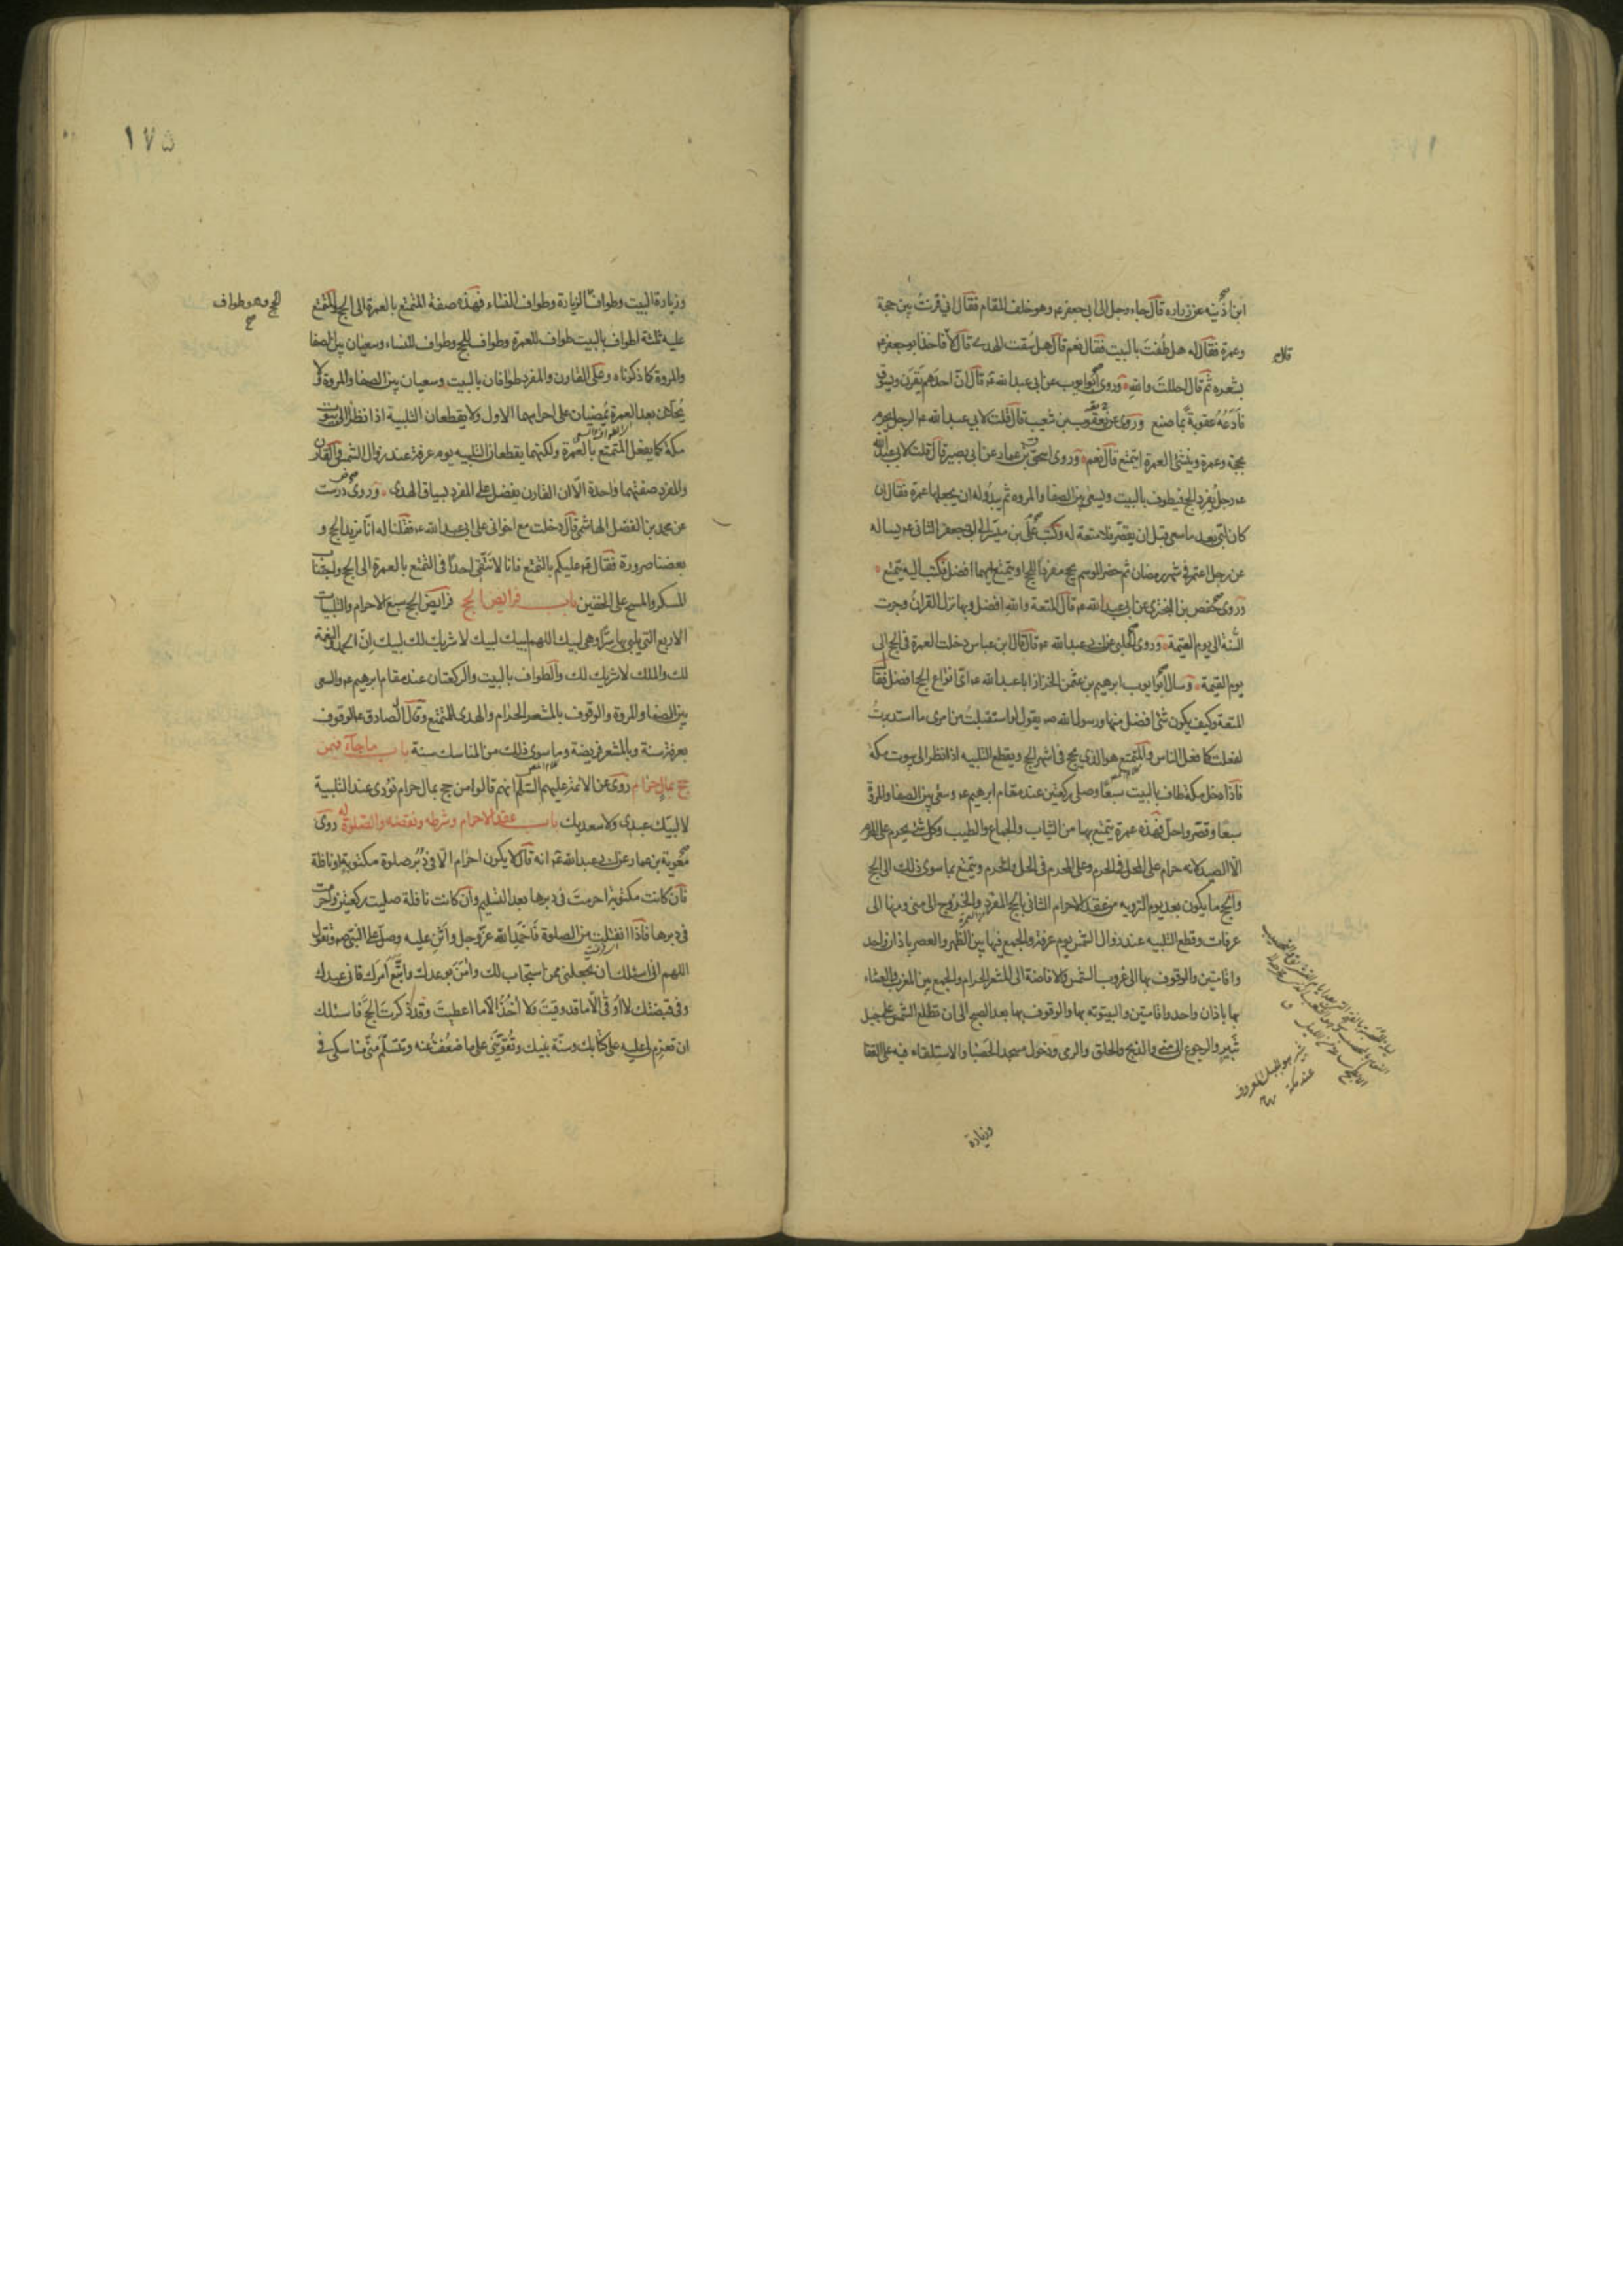 ابن اذينه عن زراره قال جاء رجل الى ابي جعفر ع وهو خلف المقام فقال اني قرنت بين حجة
وعمرة فقال له هل طفت بالبيت فقال نعم قال هل سقت الهدى قال لا فاخذ ابو جعفر ع
بشعره ثم قال احللت والله وروى ابو ايوب عن ابي عبدالله ع قال ان احدهم يقرن ويسوق
فادعه عقوبة بما صنع وروى عن يعقوب بن شعيب قال قلت لابي عبدالله ع الرجل يحرم
بحجة وعمرة وينشئ العمرة ايتمتع قال نعم وروى اسحق بن عمار عن ابي بصير قال قلت لابي عبدالله
ع رجل يفرد الحج فيطوف بالبيت ويسعى بين الصفا والمروه ثم يبدو له ان يجعلها عمرة فقال ان
كان لبى بعد ما سعى قبل ان يقصر فلا متعة له وكتب علي بن ميسر الى ابي جعفر الثاني ع يساله
عن رجل اعتمر في شهر رمضان ثم حضر الموسم يحج مفردا للحج او يتمتع ايهما افضل فكتب اليه يتمتع
وروى حفص بن البختري عن ابي عبدالله ع قال المتعة والله افضل وبها نزل القران وجرت
السنة الى يوم القيمة وروى الحلبي عن ابي عبدالله ع قال قال ابن عباس دخلت العمرة في الحج الى
يوم القيمة وسال ابو ايوب ابرهيم بن عثمن الخزاز ابا عبدالله ع اى انواع الحج افضل فقال
المتعة وكيف يكون شئ افضل منها ورسول الله ص يقول لو استقبلت من امرى ما استدبرت
لفعلت كما فعل الناس والمتمتع هو الذى يحج في اشهر الحج ويقطع التلبيه اذا نظر الى بيوت مكة
فاذا دخل مكة طاف بالبيت سبعا وصلى ركعتين عند مقام ابرهيم ع وسعى بين الصفا والمروة
سبعا وقصر واحل فهذه عمرة يتمتع بها من الثياب والجماع والطيب وكل شئ يحرم على المحرم
الا الصيد لانه حرام على المحل في الحرم وعلى المحرم في الحل والحرم ويتمتع بما سوى ذلك الى الحج
والحج ما يكون بعد يوم الترويه من عقد الاحرام الثاني بالحج المفرد والخروج الى منى ومنها الى
عرفات وقطع التلبيه عند زوال الشمس يوم عرفة والجمع فيها بين الظهر والعصر باذان واحد
واقامتين والوقوف بها الى غروب الشمس والافاضة الى المشعر الحرام والجمع بين المغرب والعشاء
بها باذان واحد واقامتين والبيتوته بها والوقوف بها بعد الصبح الى ان تطلع الشمس على جبل
ثبير والرجوع الى منى والذبح والحلق والرمى ودخول مسجد الحصباء والاستلقاء فيه على القفا
ثبير هو الجبل المعروف
عند مكة
وزيادة
١٧٥
وزيادة البيت وطواف الزيارة وطواف النساء فهذه صفة المتمتع بالعمرة الى الحج والمتمتع
الحج وهو طواف
صح
عليه ثلثة اطواف بالبيت طواف للعمرة وطواف للحج وطواف للنساء وسعيان بين الصفا
والمروة كما ذكرناه وعلى القارن والمفرد طوافان بالبيت وسعيان بين الصفا والمروة ولا
يحلان بعد العمرة يمضيان على احرامهما الاول ولا يقطعان التلبية اذا نظرا الى بيوت
مكة كما يفعل المتمتع بالعمرة ولكنهما يقطعان التلبيه يوم عرفة عند زوال الشمس والقارن
والمفرد صفتهما واحدة الا ان القارن يفضل على المفرد بسياق الهدى وروى درست
عن محمد بن الفضل الهاشمي قال دخلت مع اخواني على ابي عبدالله ع فقلنا له انا نريد الحج و
بعضنا صرورة فقال ع عليكم بالتمتع فانا لا نتقي احدا في التمتع بالعمرة الى الحج واجتناب
المسكر والمسح على الخفين باب فرايض الحج فرايض الحج سبع الاحرام والتلبيات
الاربع التي يلبى بها سرا وهى لبيك اللهم لبيك لبيك لا شريك لك لبيك ان الحمد والنعمة
لك والملك لا شريك لك والطواف بالبيت والركعتان عند مقام ابرهيم ع والسعى
بين الصفا والمروة والوقوف بالمشعر الحرام والهدى للمتمتع وقال الصادق ع الوقوف
بعرفة سنة وبالمشعر فريضة وما سوى ذلك من المناسك سنة باب ما جاء فيمن
حج بمال حرام روى عن الائمة عليهم السلم انهم قالوا من حج بمال حرام نودى عند التلبية
لا لبيك عبدى ولا سعديك باب عقد الاحرام وشرطه ونقضه والصلوة له روى
معوية بن عمار عن ابي عبدالله ع انه قال لا يكون احرام الا في دبر صلوة مكتوبة او نافلة
فان كانت مكتوبة احرمت في دبرها بعد التسليم وان كانت نافلة صليت ركعتين واحرمت
في دبرها فاذا انفتلت من الصلوة فاحمد الله عز وجل واثن عليه وصل على النبي ص وتقول
اللهم انى اسئلك ان تجعلني ممن استجاب لك وامن بوعدك واتبع امرك فانى عبدك
وفي قبضتك لا اوقى الا ما قد وقيت ولا اخذ الا ما اعطيت وقد ذكرت الحج فاسئلك
ان تعزم لى عليه على كتابك وسنة نبيك وتقويني على ما ضعفت عنه وتتسلم مني مناسكى في